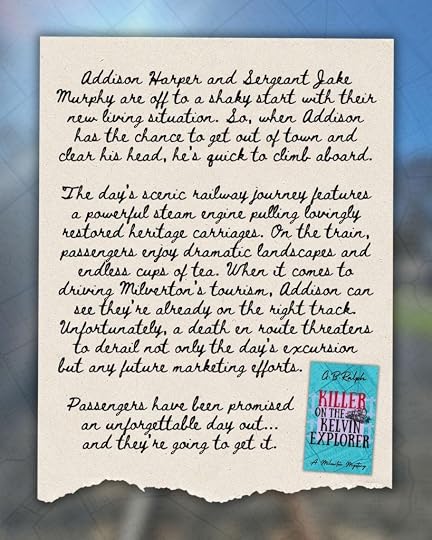 Addison Harper and Sergeant Jake
Murphy are off to a shaky start with their
new living situation. So, when Addison
has the chance to get out of town and
clear his head, he's quick to climb aboard.
The day's scenic railway journey features
a powerful steam engine pulling lovingly
restored heritage carriages. On the train,
passengers enjoy dramatic landscapes and
endless cups of tea. When it comes to
driving Milverton's tourism, Addison can
see they're already on the right track.
Unfortunately, a death en route threatens
to derail not only the day's excursion
but any future marketing efforts.
Passengers have been promised
an unforgettable day out...
and they're going to get it.
A.B Ralph
KILLER
ON THE
KELVIN
EXPLORER
A Milverton Mystery